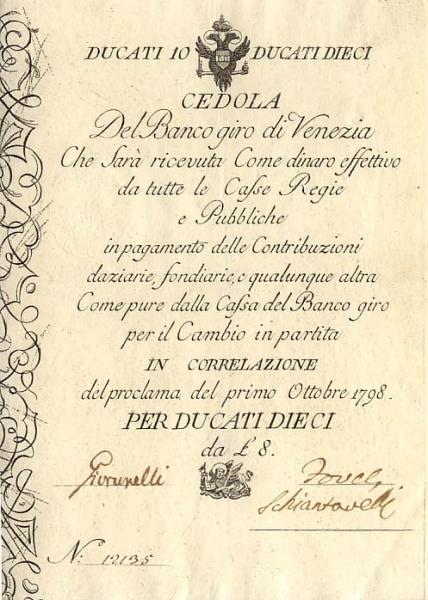 DUCATI 10 DUCATI DIECI
CEDOLA
Del Banco giro di Venezia
Che Sarà ricevuta Come dinaro effettivo
da tutte le Casse Regie
e Pubbliche
in pagamento delle Contribuzioni
daziarie, fondiarie, e qualunque altra
Come pure dalla Cassa del Banco giro
per il Cambio in partita
IN CORRELAZIONE
del proclama del primo Ottobre 1798.
PER DUCATI DIECI
da £ 8.
Giovanelli
Schiantarelli
N: 12135